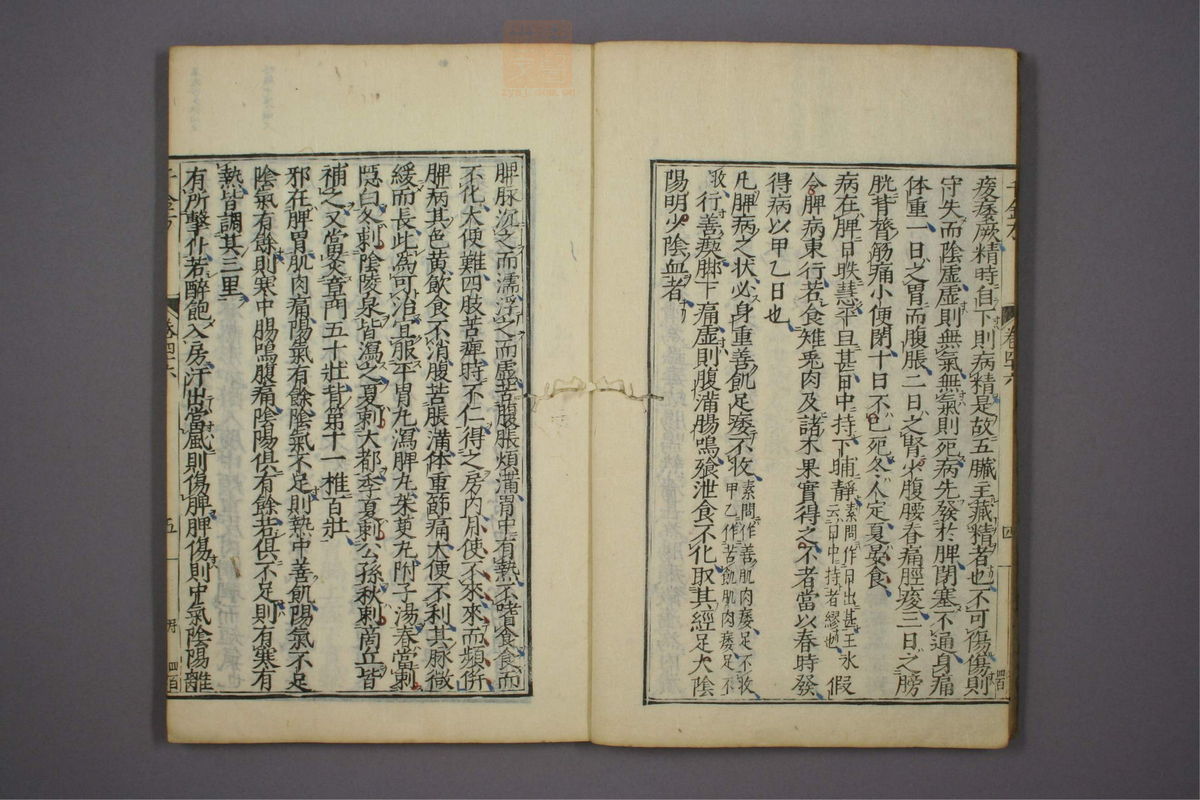 痠痿厥精時自下則病精是故五臟主藏精者也不可傷傷則
守失而陰虛虛則無氣無氣則死病先發於脾閉塞不通身痛
体重一日之胃而腹脹二日之腎少腹腰脊痛脛痠三日之膀
胱背膂筋痛小便閉十日不已死冬人定夏晏食
病在脾日昳慧平旦甚日中持下晡靜素問作日出甚王氷云日中持者繆也假
令脾病東行若食雉兎肉及諸木果實得之不者當以春時發
得病以甲乙日也
凡脾病之狀必身重善飢足痿不收素問作善肌肉痿足不收甲乙作苦飢肌肉痿足不收
行善瘈脚下痛虛則腹滿腸鳴飱泄食不化取其經足太陰
陽明少陰血者
卷四十六
四
脾脉沉之而濡浮之而虛苦腹脹煩滿胃中有熱不嗜食食而
不化大便難四肢苦痺時不仁得之房内月使不來來而頻併
脾病其色黃飲食不消腹苦脹滿体重節痛大便不利其脉微
緩而長此為可治宜服平胃丸瀉脾丸茱萸丸附子湯春當刺
隱白冬刺陰陵泉皆瀉之夏刺大都季夏刺公孫秋刺商丘皆
補之又當灸章門五十壯背第十一椎百壯
邪在脾胃肌肉痛陽氣有餘陰氣不足則熱中善飢陽氣不足
陰氣有餘則寒中腸鳴腹痛陰陽俱有餘若俱不足則有寒有
熱皆調其三里
有所擊仆若醉飽入房汗出當風則傷脾脾傷則中氣陰陽離
五